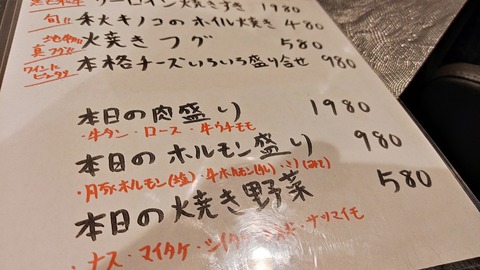 サーロイン焼きすき 1980
旬!! 秋キノコのホイル焼き 480
地物 真フグ!! 火焼きフグ 580
ワインにピッタリ 本格チーズいろいろ盛り合せ 980
本日の肉盛り 1980
・牛タン・ロース・牛ウチモモ
本日のホルモン盛り 980
・月豚ホルモン(塩)・牛ホルモン
本日の焼き野菜 580
・ナス・マイタケ・シイタ サツマイモ